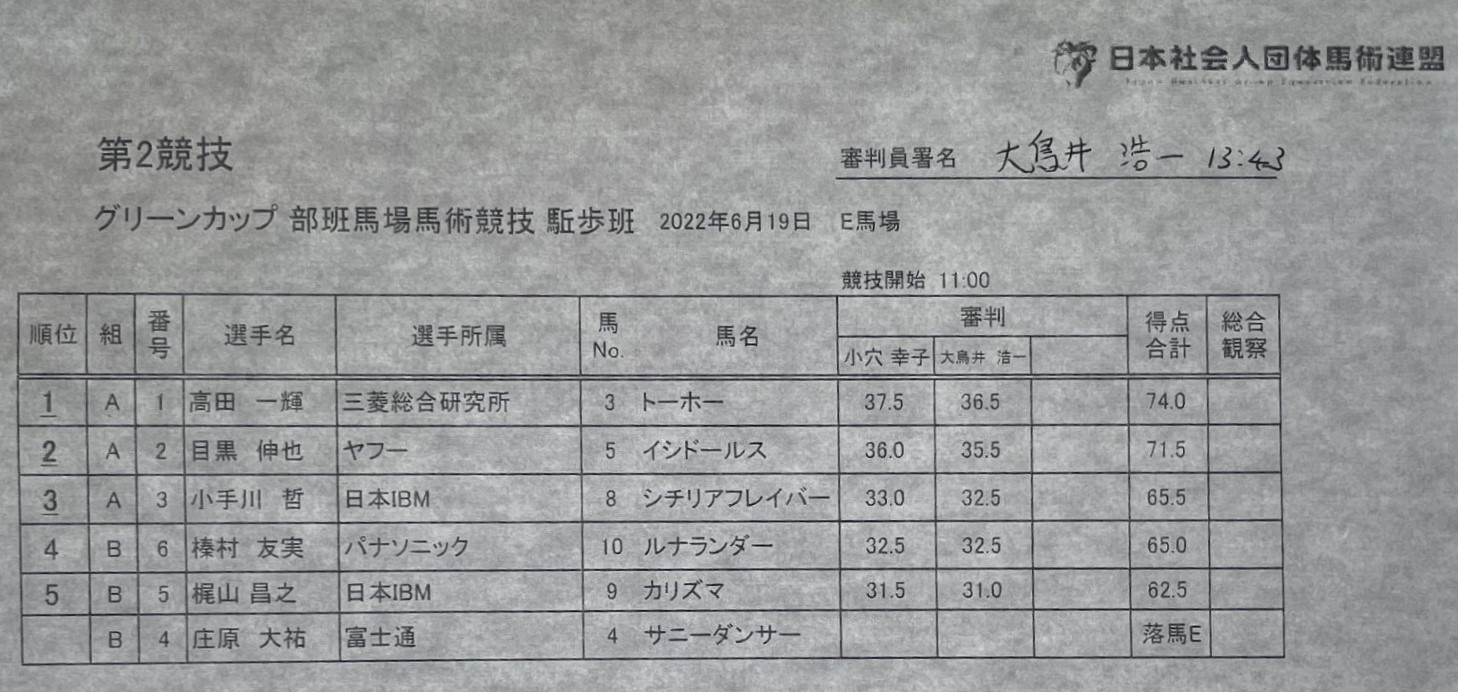 日本社会人団体馬術連盟
Japan Business Group Equestrian Federation
第2競技
審判員署名 大鳥井 浩一 13:43
グリーンカップ 部班馬場馬術競技 駈歩班 2022年6月19日 E馬場
競技開始 11:00
順位 組 番号 選手名 選手所属 馬No. 馬名 審判 得点合計 総合観察
小穴 幸子 大鳥井 浩一
1 A 1 高田 一輝 三菱総合研究所 3 トーホー 37.5 36.5 74.0
2 A 2 目黒 伸也 ヤフー 5 イシドールス 36.0 35.5 71.5
3 A 3 小手川 哲 日本IBM 8 シチリアフレイバー 33.0 32.5 65.5
4 B 6 榛村 友実 パナソニック 10 ルナランダー 32.5 32.5 65.0
5 B 5 梶山 昌之 日本IBM 9 カリズマ 31.5 31.0 62.5
B 4 庄原 大祐 富士通 4 サニーダンサー 落馬E